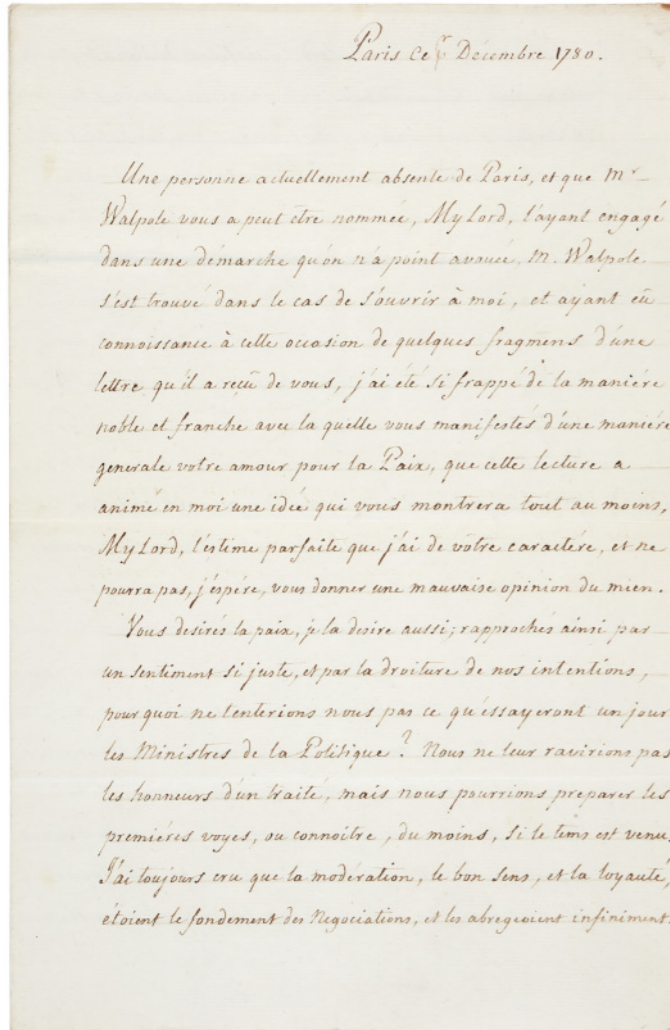 Paris ce Décembre 1780.
Une personne actuellement absente de Paris, et que Mr
Walpole vous a peut etre nommée, MyLord, l'ayant engagé
dans une démarche qu'on n'a point avouée, M. Walpole
s'est trouvé dans le cas de s'ouvrir à moi, et ayant eû
connoissance à cette occasion de quelques fragmens d'une
lettre qu'il a reçû de vous, j'ai été si frappé de la maniére
noble et franche avec la quelle vous manifestés d'une maniére
generale votre amour pour la Paix, que cette lecture a
animé en moi une idée qui vous montrera tout au moins,
MyLord, l'estime parfaite que j'ai de vôtre caractére, et ne
pourra pas, j'espére, vous donner une mauvaise opinion du mien.
Vous desirés la paix, je la desire aussi; rapprochés ainsi par
un sentiment si juste, et par la droiture de nos intentions,
pourquoi ne tenterions nous pas ce qu'éssayeront un jour
les Ministres de la Politique? Nous ne leur ravirions pas
les honneurs d'un traité, mais nous pourrions preparer les
premiéres voyes, ou connoitre, du moins, si le tems est venu.
J'ai toujours cru que la modération, le bon sens, et la loyauté,
étoient le fondement des Negociations, et les abregeoient infiniment.